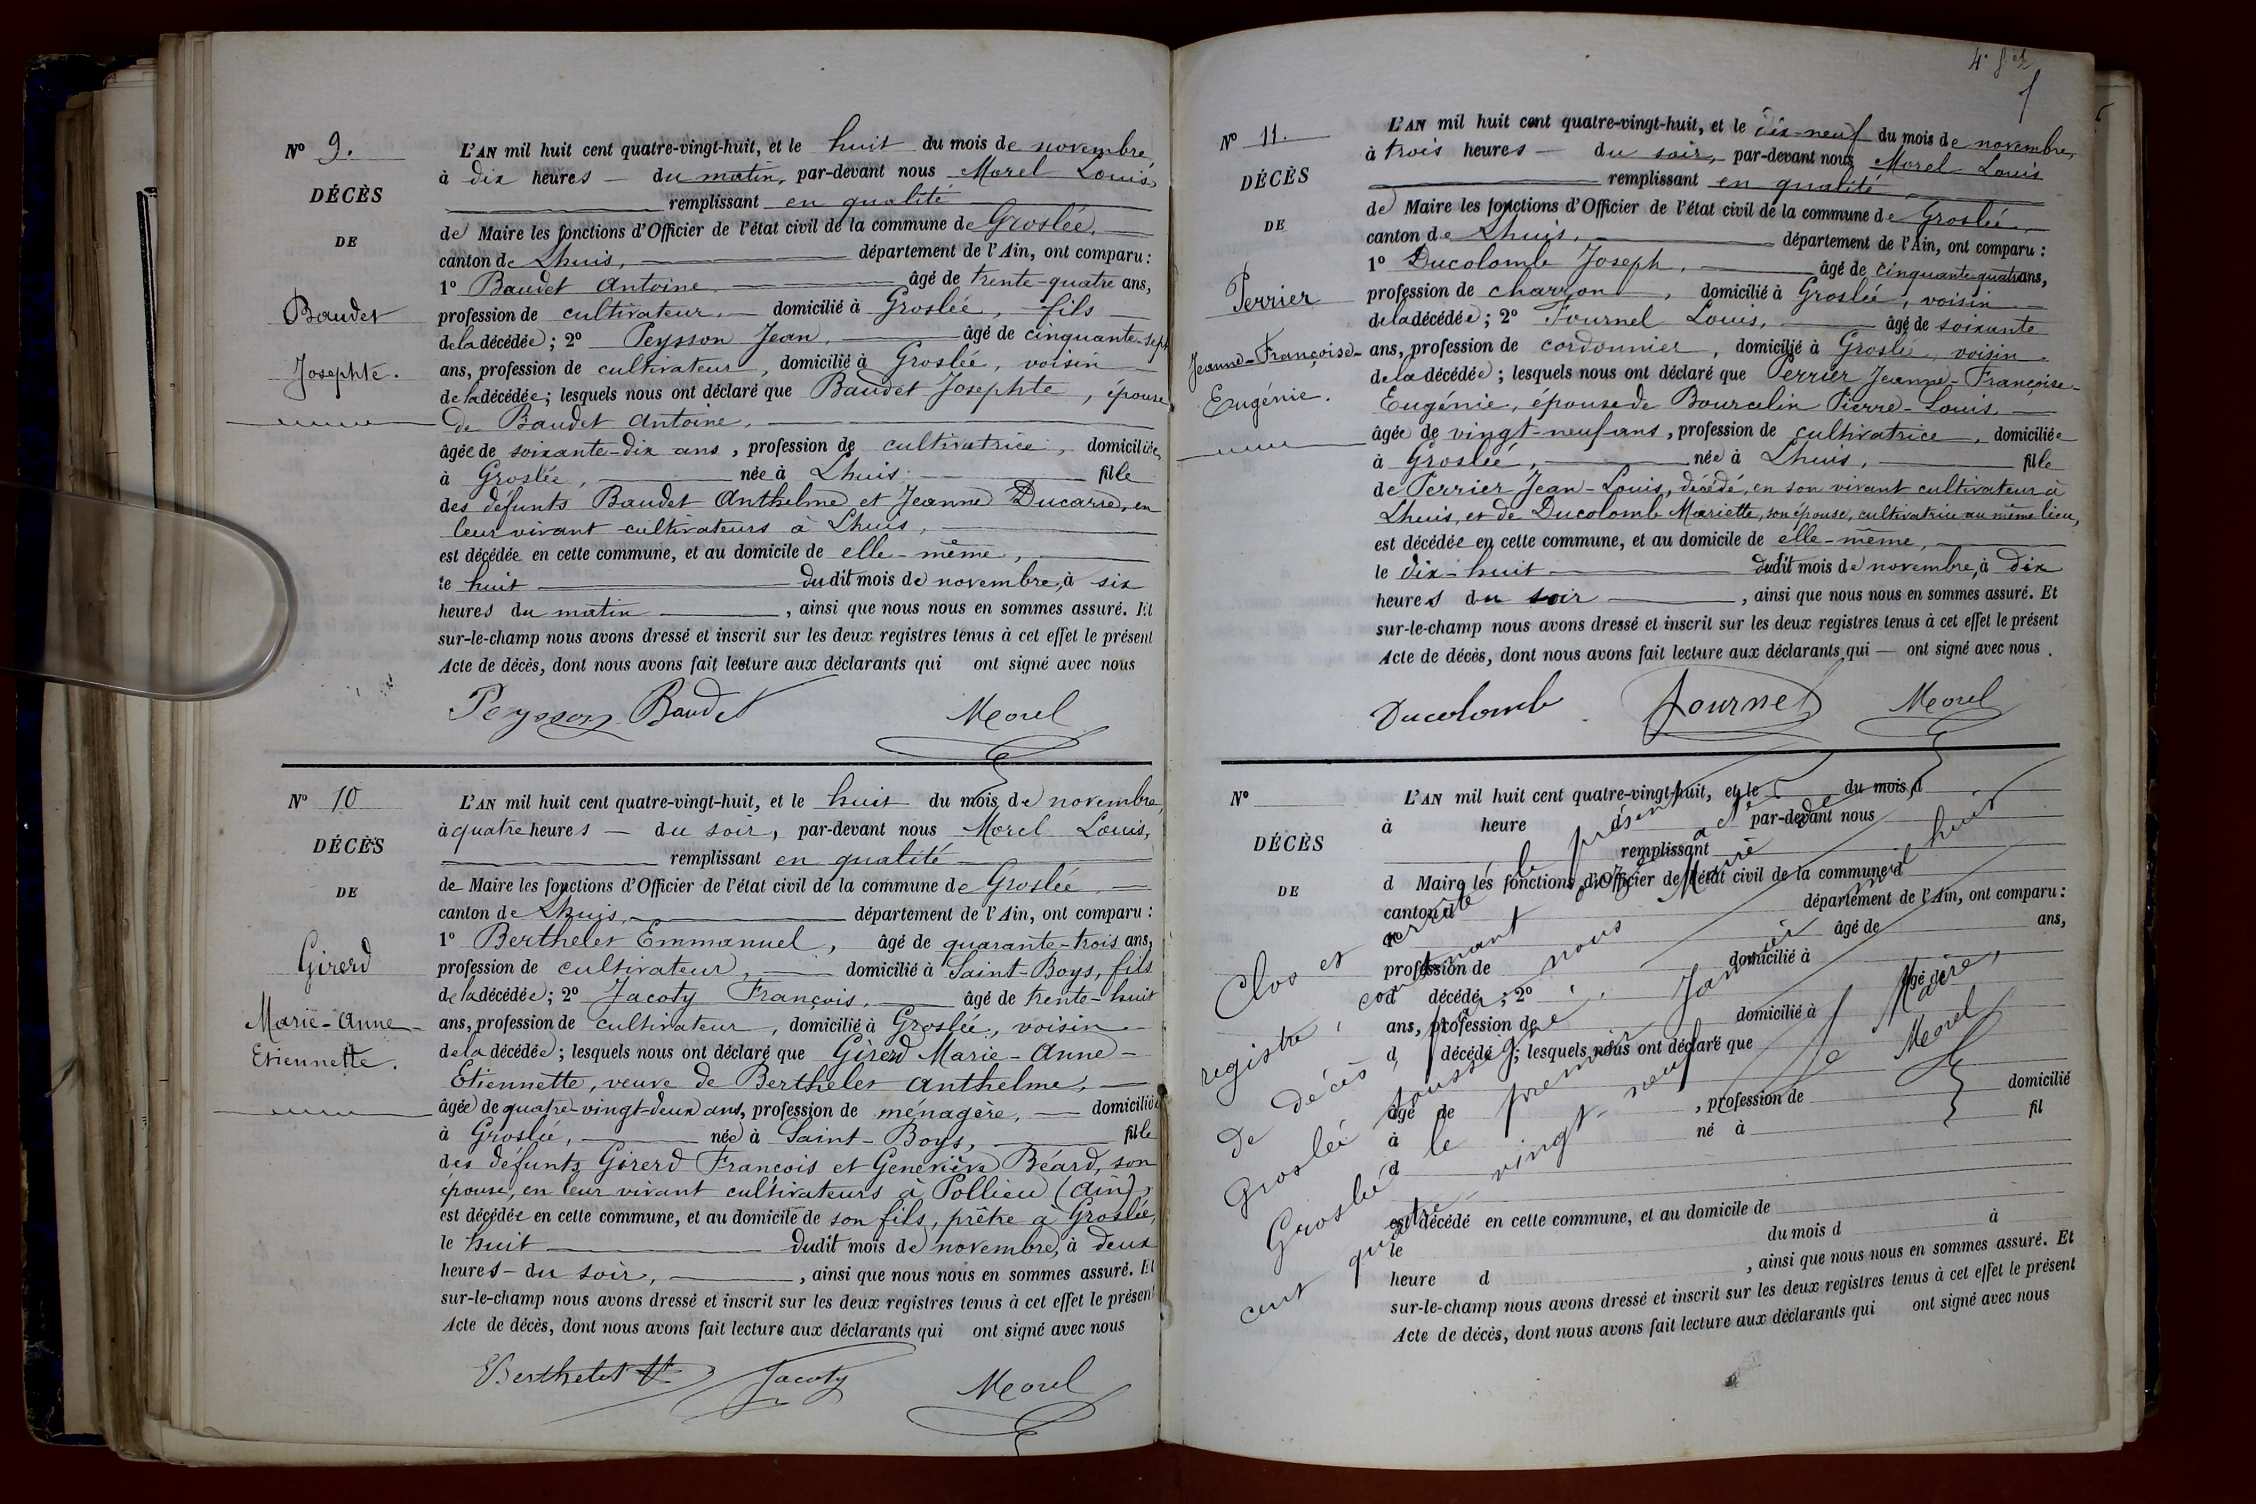 Nº 9.
DÉCÈS
DE
Baudet
Josephte.
L'AN mil huit cent quatre-vingt-huit, et le huit du mois de novembre,
à dix heures du matin, par-devant nous Morel Louis,
remplissant en qualité
de Maire les fonctions d'Officier de l'état civil de la commune de Groslée,
canton de Lhuis, département de l'Ain, ont comparu :
1º Baudet Antoine âgé de trente-quatre ans,
profession de cultivateur, domicilié à Groslée, fils
de la décédée ; 2º Peysson Jean, âgé de cinquante-sept
ans, profession de cultivateur, domicilié à Groslée, voisin
de la décédée ; lesquels nous ont déclaré que Baudet Josephte, épouse
de Baudet Antoine,
âgée de soixante-dix ans, profession de cultivatrice, domiciliée
à Groslée, née à Lhuis, fille
des défunts Baudet Anthelme et Jeanne Ducarre, en
leur vivant cultivateurs à Lhuis,
est décédée en cette commune, et au domicile de elle-même,
le huit dudit mois de novembre, à six
heures du matin, ainsi que nous nous en sommes assuré. Et
sur-le-champ nous avons dressé et inscrit sur les deux registres tenus à cet effet le présent
Acte de décès, dont nous avons fait lecture aux déclarants qui ont signé avec nous
Peysson Baudet Morel
Nº 10
DÉCÈS
DE
Girerd
Marie-Anne-
Etiennette.
L'AN mil huit cent quatre-vingt-huit, et le huit du mois de novembre,
à quatre heures du soir, par-devant nous Morel Louis,
remplissant en qualité
de Maire les fonctions d'Officier de l'état civil de la commune de Groslée
canton de Lhuis, département de l'Ain, ont comparu :
1º Berthelet Emmanuel, âgé de quarante-trois ans,
profession de cultivateur, domicilié à Saint-Boys, fils
de la décédée ; 2º Jacoty François, âgé de trente-huit
ans, profession de cultivateur, domicilié à Groslée, voisin
de la décédée ; lesquels nous ont déclaré que Girerd Marie-Anne-
Etiennette, veuve de Berthelet Anthelme,
âgée de quatre-vingt-deux ans, profession de ménagère, domiciliée
à Groslée, née à Saint-Boys, fille
des défunts Girerd François et Geneviève Béard, son
épouse, en leur vivant cultivateurs à Pollieu (Ain),
est décédée en cette commune, et au domicile de son fils, prêtre à Groslée,
le huit dudit mois de novembre, à deux
heures du soir, ainsi que nous nous en sommes assuré. Et
sur-le-champ nous avons dressé et inscrit sur les deux registres tenus à cet effet le présent
Acte de décès, dont nous avons fait lecture aux déclarants qui ont signé avec nous
Berthelet Jacoty Morel
4e
Nº 11.
DÉCÈS
DE
Perrier
Jeanne-Françoise-
Eugénie.
L'AN mil huit cent quatre-vingt-huit, et le dix-neuf du mois de novembre,
à trois heures du soir, par-devant nous Morel Louis
remplissant en qualité
de Maire les fonctions d'Officier de l'état civil de la commune de Groslée,
canton de Lhuis, département de l'Ain, ont comparu :
1º Ducolomb Joseph, âgé de cinquante-quatre ans,
profession de charron, domicilié à Groslée, voisin
de la décédée ; 2º Fournel Louis, âgé de soixante
ans, profession de cordonnier, domicilié à Groslée, voisin
de la décédée ; lesquels nous ont déclaré que Perrier Jeanne-Françoise-
Eugénie, épouse de Bourcelin Pierre-Louis
âgée de vingt-neuf ans, profession de cultivatrice, domiciliée
à Groslée, née à Lhuis, fille
de Perrier Jean-Louis, décédé, en son vivant cultivateur à
Lhuis, et de Ducolomb Mariette, son épouse, cultivatrice au même lieu,
est décédée en cette commune, et au domicile de elle-même,
le dix-huit dudit mois de novembre, à dix
heures du soir, ainsi que nous nous en sommes assuré. Et
sur-le-champ nous avons dressé et inscrit sur les deux registres tenus à cet effet le présent
Acte de décès, dont nous avons fait lecture aux déclarants qui ont signé avec nous.
Ducolomb Fournel Morel
Nº
DÉCÈS
DE
L'AN mil huit cent quatre-vingt-huit, et le du mois d
à heure d par-devant nous
remplissant
d Maire les fonctions d'Officier de l'état civil de la commune d
canton d département de l'Ain, ont comparu :
1º âgé de ans,
profession de domicilié à
d décédé ; 2º âgé de
ans, profession de domicilié à
d décédé ; lesquels nous ont déclaré que
âgé de , profession de domicilié
à né à fil
d
est décédé en cette commune, et au domicile de
le du mois d à
heure d , ainsi que nous nous en sommes assuré. Et
sur-le-champ nous avons dressé et inscrit sur les deux registres tenus à cet effet le présent
Acte de décès, dont nous avons fait lecture aux déclarants qui ont signé avec nous
Clos et arrêté le présent
registre, contenant onze actes
de décès, par nous Maire de
Groslée soussigné.
Groslée le premier Janvier mil huit
cent quatre-vingt-neuf
Le Maire,
Morel